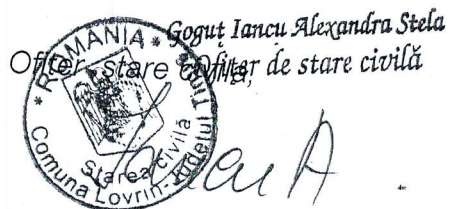 Goguț Iancu Alexandra Stela
Ofițer de stare civilă
Ofițer stare civilă,
* ROMÂNIA * Județul Timiș
Comuna Lovrin
Starea civilă
Iancu A.